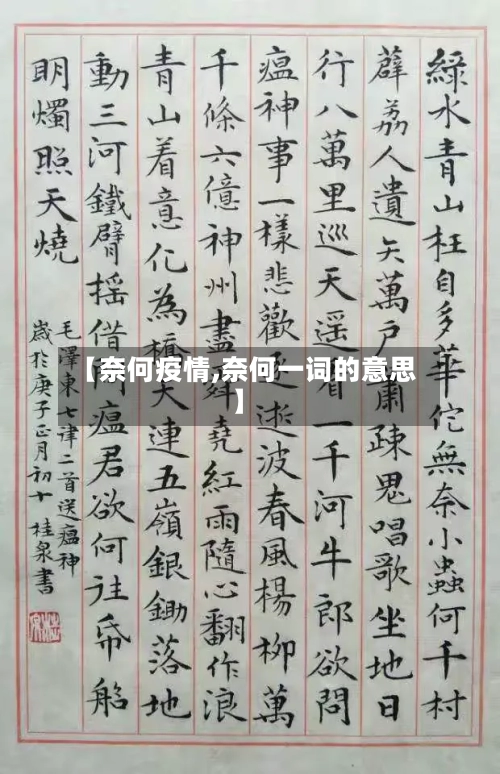 綠水青山枉自多華佗無奈小蟲何千村
薜荔人遺矢萬戶蕭疎鬼唱歌坐地日
行八萬里巡天遙看一千河牛郎欲問
瘟神事一樣悲歡逐逝波春風楊柳萬
千條六億神州盡舜堯紅雨隨心翻作浪
青山着意化為橋天連五嶺銀鋤落地
動三河鐵臂搖借問瘟君欲何往帋船
明燭照天燒
毛澤東七律二首送瘟神
歲於庚子正月初十 桂泉書
【奈何疫情,奈何一词的意思
】